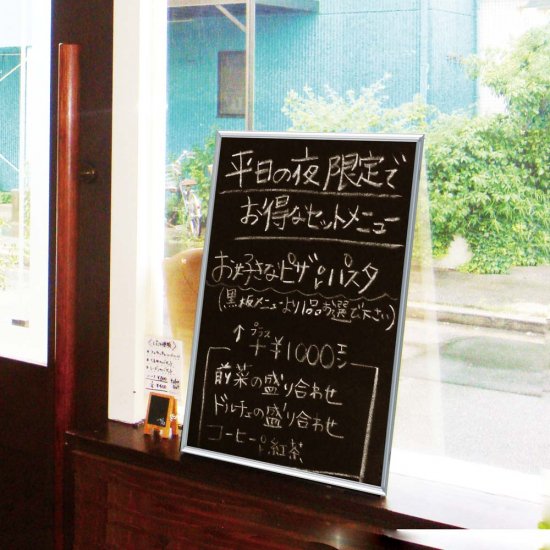 平日の夜限定で
お得なセットメニュー
お好きなピザorパスタ
(黒板メニューより1品お選び下さい)
↑プラス
+¥1000エン
前菜の盛り合わせ
ドルチェの盛り合わせ
コーヒーor紅茶